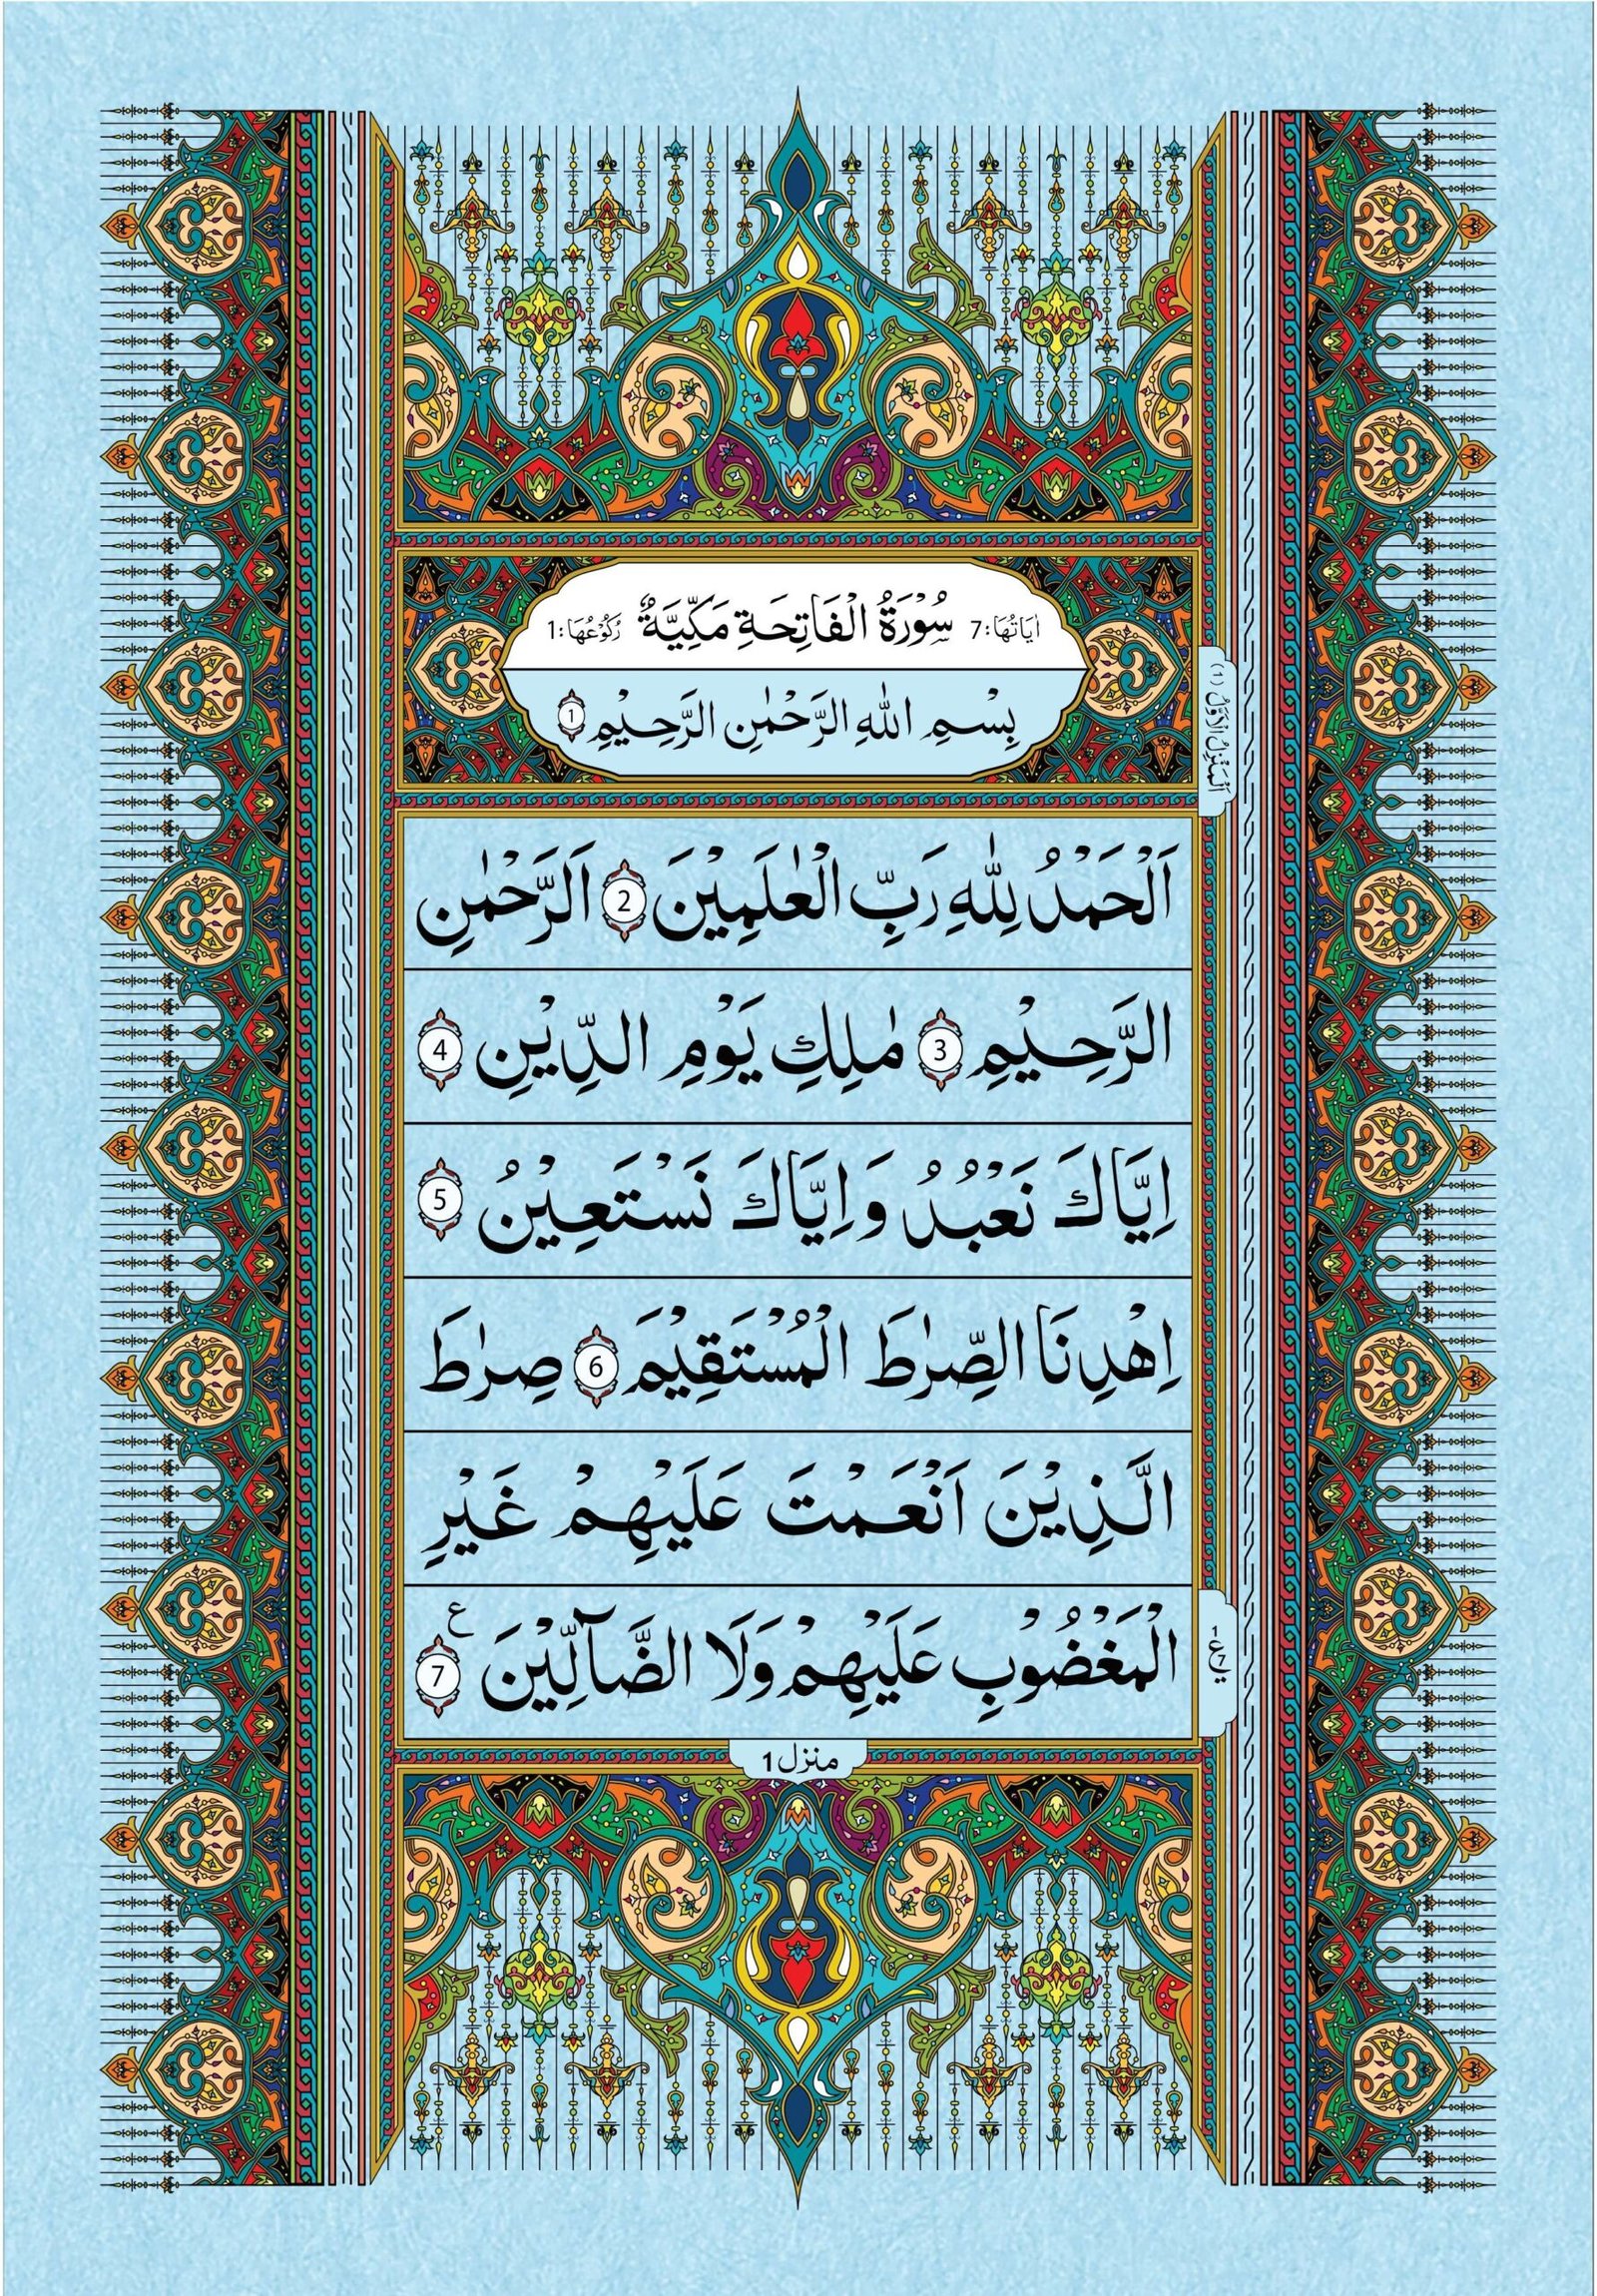 اٰيَاتُهَا:7 سُوْرَةُ الْفَاتِحَةِ مَكِّيَّةٌ رُكُوْعُهَا:1
بِسْمِ اللّٰهِ الرَّحْمٰنِ الرَّحِيْمِ 1
اَلْمَنْزِلُ الْاَوَّلُ (1)
اَلْحَمْدُ لِلّٰهِ رَبِّ الْعٰلَمِيْنَ 2 اَلرَّحْمٰنِ
الرَّحِيْمِ 3 مٰلِكِ يَوْمِ الدِّيْنِ 4
اِيَّاكَ نَعْبُدُ وَاِيَّاكَ نَسْتَعِيْنُ 5
اِهْدِنَا الصِّرٰطَ الْمُسْتَقِيْمَ 6 صِرٰطَ
الَّذِيْنَ اَنْعَمْتَ عَلَيْهِمْ غَيْرِ
الْمَغْضُوْبِ عَلَيْهِمْ وَلَا الضَّآلِّيْنَ 7 ع
منزل 1